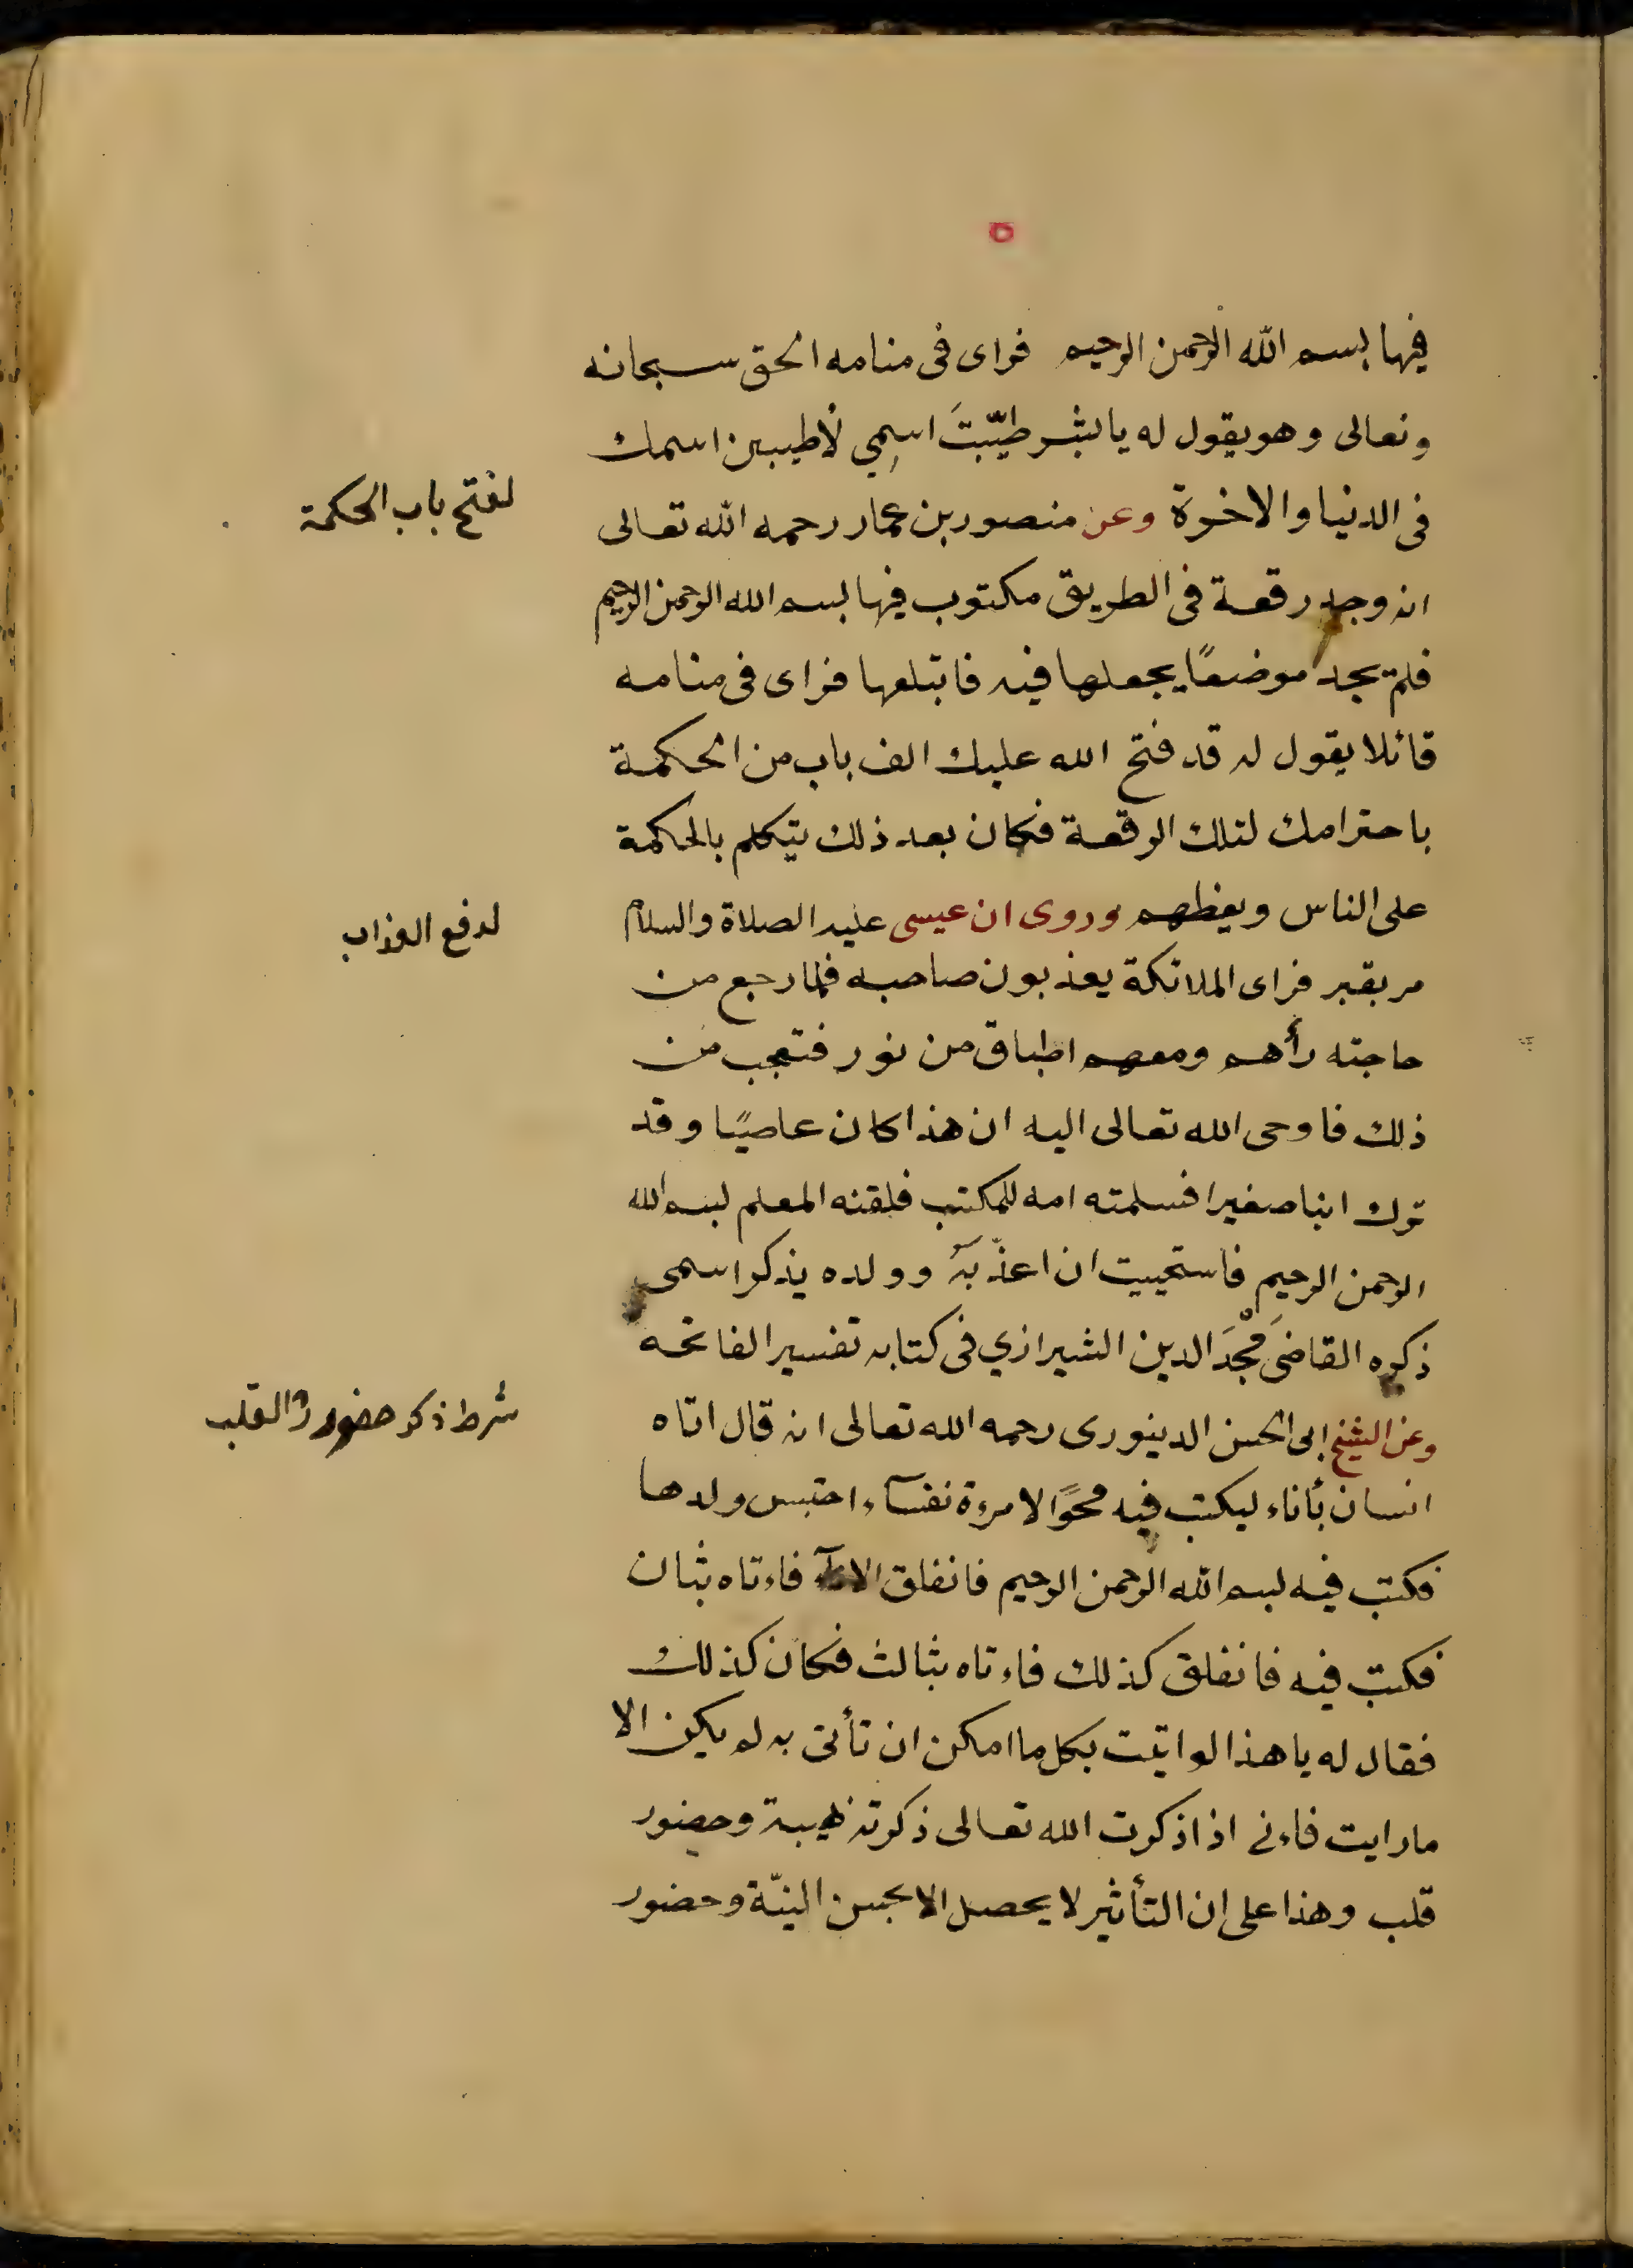 ٥
فيها بسم الله الرحمن الرحيم فراى فى منامه الحق سبحانه
وتعالى وهو يقول له يا بشر طيّبتَ اسمِي لأطيبن اسمك
فى الدنيا والاخرة وعن منصور بن عمار رحمه الله تعالى
لفتح باب الحكمة
انه وجد رقعة فى الطريق مكتوب فيها بسم الله الرحمن الرحيم
فلم يجد موضعًا يجعلها فيه فابتلعها فراى فى منامه
قائلا يقول له قد فتح الله عليك الف باب من الحكمة
باحترامك لتلك الرقعة فكان بعد ذلك يتكلم بالحكمة
على الناس ويعظهم وروى ان عيسى عليه الصلاة والسلام
لدفع العذاب
مر بقبر فراى الملائكة يعذبون صاحبه فلما رجع من
حاجته رأهم ومعهم اطباق من نور فتعجب من
ذلك فاوحى الله تعالى اليه ان هذا كان عاصيًا وقد
ترك ابنا صغيرا فسلمته امه للمكتب فلقنه المعلم بسم الله
الرحمن الرحيم فاستحييت ان اعذّبه وولده يذكر اسمى
ذكره القاضى مجْدَ الدين الشيرازي فى كتابه تفسير الفاتحه
وعن الشيخ ابى الحسن الدينورى رحمه الله تعالى انه قال اتاه
شرط ذكر حضور القلب
انسان بأناء ليكتب فيه محوًا لامرءة نفسآء احتبس ولدها
فكتب فيه بسم الله الرحمن الرحيم فانفلق الانآء فاءتاه بثان
فكتب فيه فانفلق كذلك فاءتاه بثالث فكان كذلك
فقال له يا هذا لو اتيت بكل ما امكن ان تأتى به لم يكن الا
ما رايت فاءنى اذا ذكرت الله تعالى ذكرته بهيبة وحضور
قلب وهذا على ان التأثير لا يحصل الا بحسن النيّة وحضور